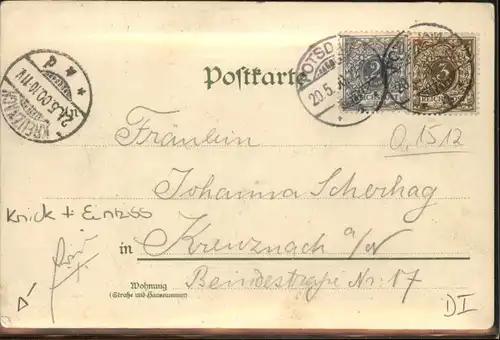 Postkarte
POTSDAM
20.5.00
2
3
REICHSPOST
KREUZNACH
21.5.00.10-11V
Q. 1512
Fräulein
Johanna Scherhag
Knick + Einriss
in Kreuznach a/N
Wohnung
(Straße und Hausnummer)
Beindestraße Nr. 17
DI